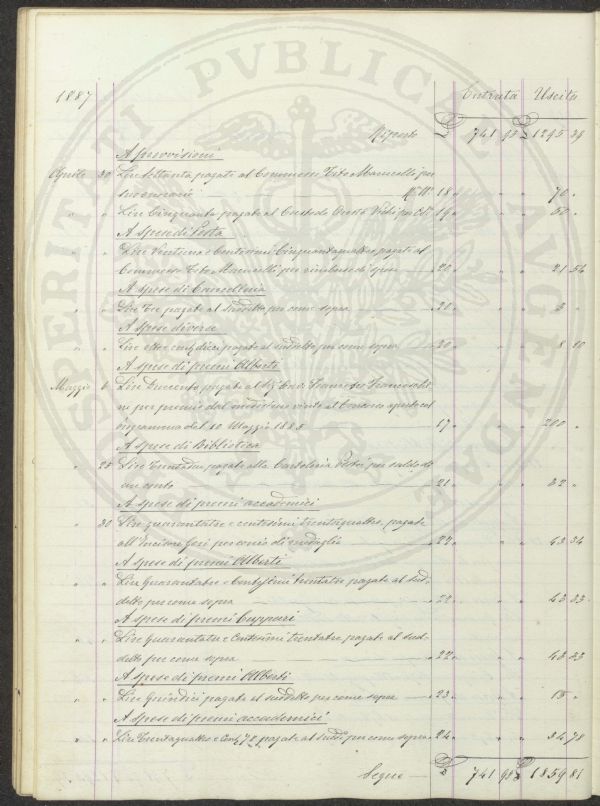 PROSPERITATI PVBLICAE AVGENDAE
1887 Entrata Uscita
Riporto £ 741 93 £ 1295 39
A provvisioni
Aprile 30 Lire settanta pagate al Commesso Tito Marucelli per
suo onorario M. N. 18 " " 70 "
" " Lire Cinquanta pagate al Custode Oreste 19 " " 50 "
A spese di Posta
" " Lire Ventuno e Centesimi Cinquantaquattro pagate al
Commesso Tito Marucelli per rimborso di spese " 20 " " 21 54
A spese di Cancelleria
" " Lire Tre pagate al suddetto per come sopra " 20 " " 3 "
A spese diverse
" " Lire otto e pagate al suddetto per come sopra " 20 " "
A spese di premi Alberti
Maggio 6 Lire Duecento pagate al Franceschi
ni per premio dal medesimo vinto al Concorso aperto col
programma del 10 Maggio 1885 17 " " 200 "
A spese di Biblioteca
" 28 Lire Trentadue pagate alla Cartoleria per saldo di
un conto " 21 " " 32 "
A spese di premi accademici
" 30 Lire quarantatre e centesimi trentaquattro, pagate
all'Incisore Gori per conio di medaglie " 22 " " 43 34
A spese di premi Alberti
" " Lire Quarantatre e Centesimi trentatre pagate al sud-
detto per come sopra " 22 " " 43 33
A spese di premi Cuppari
" " Lire Quarantatre e Centesimi trentatre, pagate al sud-
detto per come sopra " 22 " " 43 33
A spese di premi Alberti
" " Lire Quindici pagate al suddetto per come sopra " 23 " " 15 "
A spese di premi accademici
" " Lire Trentaquattro e Cent 78 pagate al sudd° per come sopra " 24 " " 34 78
Segue £ 741 93 £ 1859 81